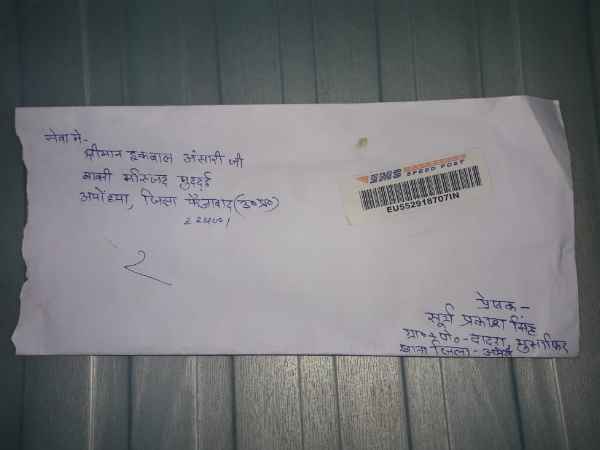 सेवा मे-
श्रीमान इकबाल अंसारी जी
बाबरी मस्जिद मुद्दई
अयोध्या, जिला फैजाबाद (उ०प्र०)
EMS SPEED POST
EU552918707IN
प्रेषक-
सूर्य प्रकाश सिंह
ग्रा०+पो०-दादरा,
थाना जिला-